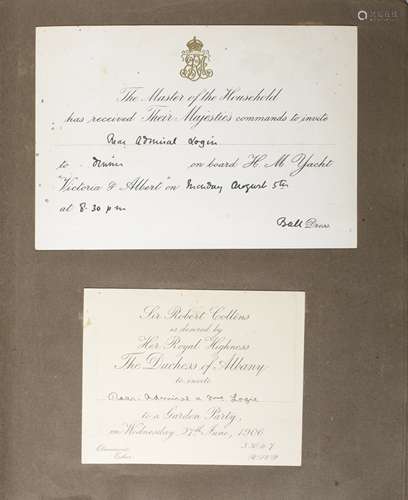 The Master of the Household
has received Their Majesties commands to invite
Rear Admiral Login
to dinner on board H. M. Yacht
"Victoria & Albert" on Monday August 5th
at 8.30 pm
Ball Dress
Sir Robert Collins
is desired by
Her Royal Highness
The Duchess of Albany
to invite
Rear Admiral & Mrs Login
to a Garden Party,
on Wednesday 27th June, 1906
Claremont
Esher
R.S.V.P.